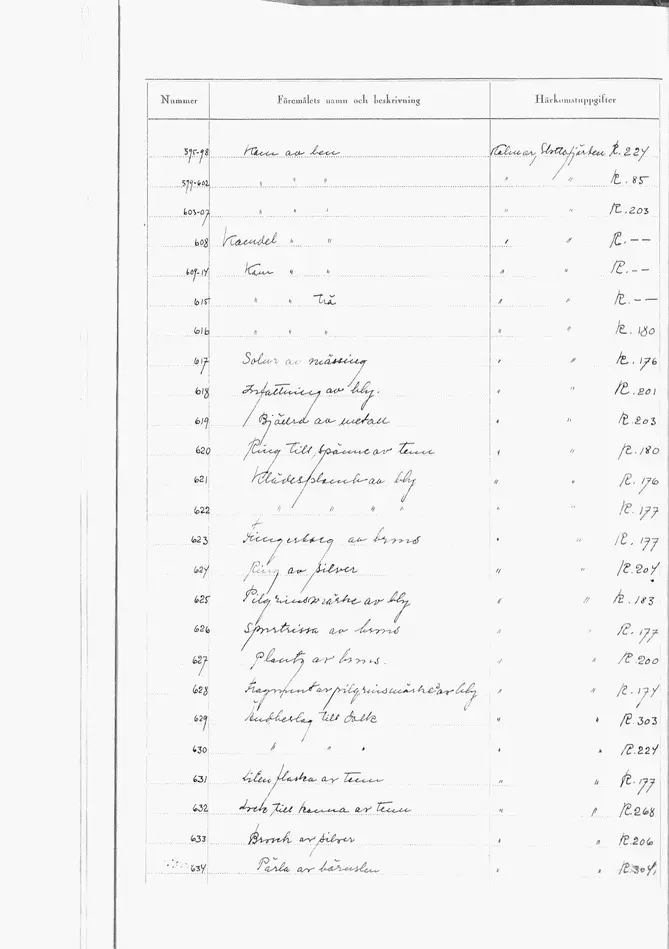 Nummer Föremålets namn och beskrivning Härkomstuppgifter
595-98 Kam av ben Kalmar, Slottsfjärden R.224
599-602 " " " " " R.85
603-07 " " " " " R.203
608 Kamdel " " " " R.--
609-14 Kam " " " " R.--
615 " " Trä " " R.--
616 " " " " " R.180
617 Solur av mässing " " R.176
618 Infattning av bly. " " R.201
619 Bjällra av metall " " R.203
620 Ring till spänne av tenn " " R.180
621 Klädesplomb av bly " " R.176
622 " " " " " " R.177
623 Fingerborg av brons " " R.177
624 Ring av silver " " R.204
625 Pilgrimsmärke av bly " " R.183
626 Sporrtrissa av brons " " R.177
627 av brons. " " R.200
628 Fragment av pilgrimsmärke? av bly " " R.174
629 Ändbeslag till dolk " " R.303
630 " " " " " R.224
631 Liten flaska av tenn " " R.177
632 Lock till kanna av tenn " " R.268
633 Brosch av silver " " R.206
634 Pärla av bärnsten " " R.304